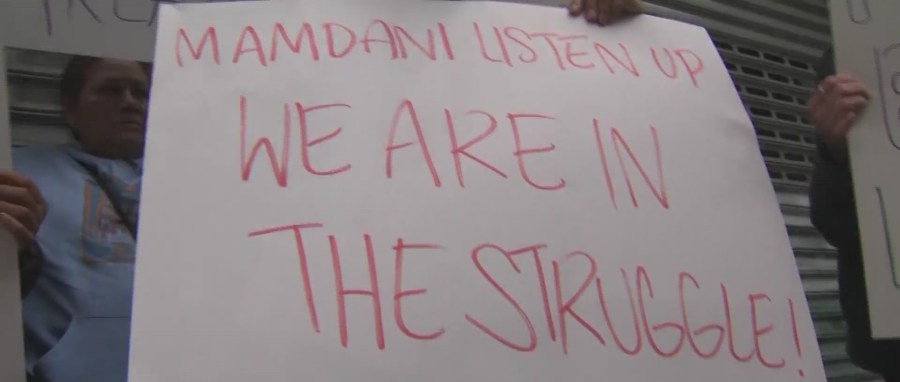 MAMDANI LISTEN UP
WE ARE IN
THE STRUGGLE!